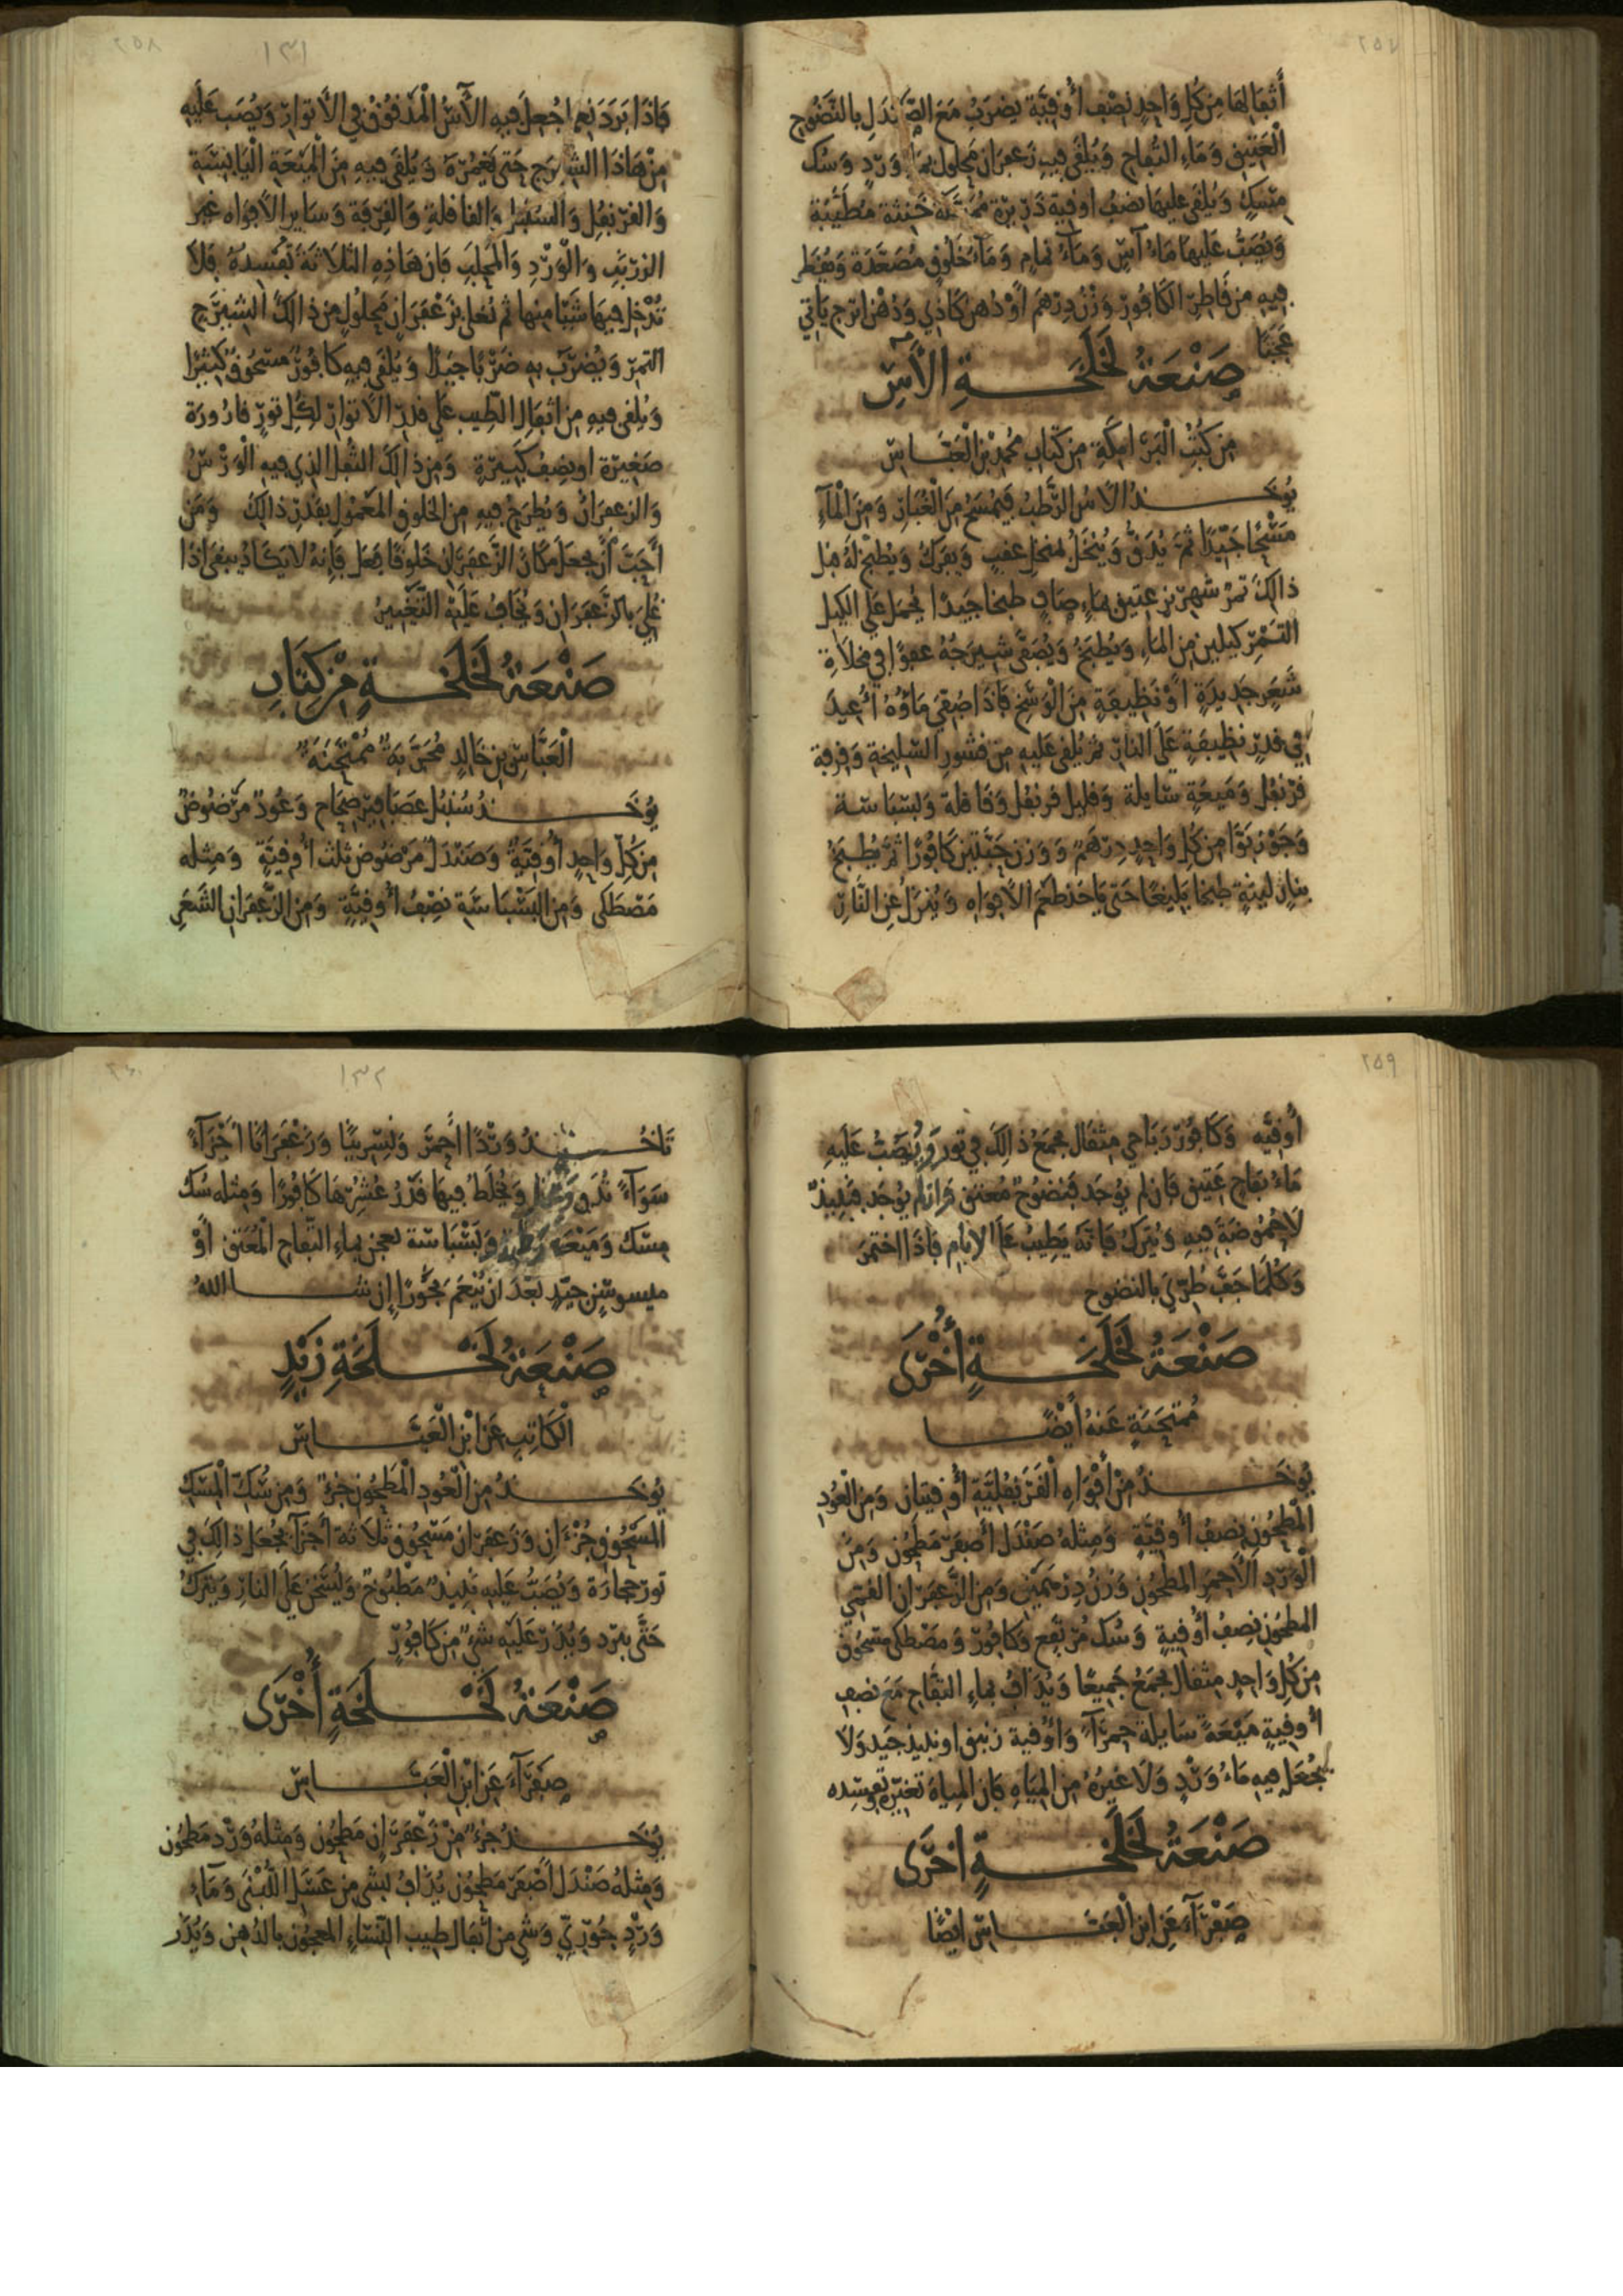 ٢٥٧
أَثفالها مِن كُلِ وَاحِدٍ نِصْف أُوقِيَّة يضرَبُ مَعَ الصَّندَلِ بالنَّضُوحِ
الْعَتِيقِ وَمَاءِ التُفاحِ وَيُلقَى فِيهِ زَعفرَان مَحلُول بِمَا وَرْدٍ وَسُك
مِسْكٍ وَيُلقَى عَليهَا نصْفُ اوقية ذَرِيرَة مُطَيَّبَة
وَيُصَبُّ عَليهَا مَاءُ آسٍ وَمَاءُ نمامٍ وَمَاءُ خَلُوقٍ مُصَعَّدَة وَيُقطر
فِيهِ مِن قَاطِرِ الكَافُورِ وَزْنُ دِرْهَم اَوْ دُهن كَاذِي وَدُهْن اترج يَاتِي
عَجَبًا
صَنْعَةُ لَخْلَخَةِ الآسِ
مِن كُتُبِ الْبَرَامِكَةِ مِن كِتَابِ مُحَمَّد بْنِ الْعَبَّاسِ
يُوخَذُ الآسُ الرَّطبُ فَيُمْسَحُ مِنَ الْغُبَارِ وَمِنَ الْمَآءِ
مَسْحًا جَيِّدًا ثمَّ يُدَقُّ وَيُنْخَلُ بمنخلٍ صفيق وَيترَكُ وَيطبخُ لَهُ قبل
ذالِكَ تمرُ شهْرِيز عتيق بمَاءٍ صَافٍ طبخا جَيِّدًا يُحمَل عَلى الكيل
التَّمْرِ كَيلين مِن المَاءِ وَيُطبَخُ وَيُصَفَّى شِيرَجُهُ عفوًا فِي مخلاةِ
شَعَرٍ جَدِيدَةٍ اَوْ نَظِيفَةٍ مِنَ الْوَسَخِ فَاذَا صُفِّيَ مَاؤُهُ أُعِيدَ
فِي قِدْرٍ نَظِيفَةٍ عَلَى النارِ ثمّ يُلقى عَليهِ مِن قشُورِ السَّلِيخةِ وَقِرفة
قَرَنْفُل وَمَيعَةٍ سَايلة وَقَليل قرنفل وَقَاقلة وَبَسْبَاسَة
وَجَوْز بَوَّا مِن كُلِ وَاحِدٍ دِرْهَم وَوَزن حَبَّتين كَافُورًا ثمَّ يُطبَخُ
بِنارٍ لينةٍ طبخا بَلِيغًا حَتى يَاخذ طعْمَ الاَفوَاهِ وَيُنزَلُ عَنِ النَّارِ
٢٥٨
١٣١
فَاذَا بَرَدَ نعم اجْعل فيهِ الآسُ الْمَدْقُوقُ فِي الاَتوارِ وَيُصَب عَلَيهِ
مِنْ هَاذَا الشيرَج حَتى يَغْمُرَهُ وَيُلقَى فِيهِ مِنَ الْمَيْعَةِ الْيَابِسَة
وَالقرنفُلِ وَالسنبُل وَالقاقلةِ وَالقِرْفَة وَسَايرِ الاَفوَاه غَير
الزرْنَبِ وَالْوَرْدِ وَالْمَحْلَبِ فَان هَاذِهِ الثلاثَةَ تُفْسِدهُ فَلاَ
تُدْخِل فِيهَا شَيْئا مِنها ثم تُغلى بزَعْفَرَانٍ مَحْلُولٍ مِن ذَالِكَ الشيرَج
التمرِ وَيُضرَبُ بِهِ ضَرْبًا جَيِّدًا وَيُلقَى فِيهِ كَافُورٌ مَسْحُوقٌ كَثِيرًا
وَيُلقى فِيهِ مِن اثفالِ الطِّيب عَلى قدرِ الاَتوارِ لكُلِ تورٍ قارُورَة
صَغِيرَة او نِصْف كَبِيرَةٍ وَمِن ذَالِكَ الثفْل الذِي فِيهِ الْوَرْسُ
وَالزعفرَانُ وَيُطرَحُ فِيهِ مِن الخلوقِ المَعْمُولِ بقَدْرِ ذَالِكَ وَمَن
أَحَبَّ أَن يجعَلَ مَكَانَ الزَّعفَرَانِ خَلُوقًا فَعَلَ فَإِنهُ لا يَكَادُ يبقى اذَا
غُلِيَ بالزَّعفَرَانِ وَيُخَافُ عَلَيْهِ التَّغَيُّرُ
صَنْعَةُ لَخْلَخَةٍ مِنْ كِتَابِ
الْعَبَّاسِ بنِ خَالِدٍ مُجَرَّبَةٌ مُمْتَحَنَةٌ
يُوخَذُ سُنبُل عَصَافِير صِحَاح وَعُودٌ مَرْضُوضٌ
مِن كُلِّ وَاحِدٍ أُوقِيَّةٌ وَصَنْدَل مَرْضُوض ثلث أُوقِيَّةٍ وَمِثله
مَصْطَكى وَمِن البَسْبَاسَة نِصْفُ أُوقِيَّةٍ وَمِنَ الزَّعْفَرَانِ الشَّعَرِ
٢٥٩
أُوقيَّه وَكَافُورٌ رَبَاحِي مِثقَال يجمَعُ ذَالِكَ فِي تور وَيُصَبُّ عَلَيهِ
مَاءُ تفاح عَتِيق فَان لم يُوجَد فَنَضُوحٌ مُعتق وَان لم يُوجَد فنبيذ
لاَ حُمُوضَةَ فِيهِ وَيُترَكُ فَانَّهُ يَطِيبُ عَلَى الاَيامِ فَاذَا اختمَر
وَكُلَّمَا جَفَّ طُرِّيَ بالنضوح
صَنْعَةُ لَخْلَخَةٍ أُخْرَى
مُمْتَحَنَةٍ عَنهُ أَيْضًا
يُوخَذُ مِنْ أَفْوَاهِ الْقَرَنفُلِيَّةِ أُوقيتان وَمِنَ الْعُودِ
المَطحُونِ نِصفُ أُوقِيَّةٍ وَمِثلهُ صَنْدَل أَصْفَر مَطحُون وَمِنَ
الْوَرْدِ الأَحمَر المَطحُون وَزنُ دِرْهَمَيْنِ وَمِن الزَّعفرَانِ القمّي
المطحُون نِصفُ أُوقيةٍ وَسُك مُرْتَفِع وَكَافُورٌ وَمَصْطكى مَسْحُوق
مِن كُلِ وَاحِدٍ مِثقال يجمَعُ جَمِيعًا وَيُدَافُ بِمَاءِ التفَّاحِ مَعَ نصْفِ
أُوقيةٍ مَيْعَةً سَايلة حَمرَآءَ وَأُوقية زنبق او نبيذ جَيد وَلا
يُجْعَل فِيهِ مَاءُ وَرْدٍ وَلاَ غيرُهُ مِن المِيَاهِ فَان المِياهَ تُغيّرهُ وتفسِدُه
صَنْعَةُ لَخْلَخَةٍ أخرَى
صَفْرَآءَ عَنِ ابن الْعَبَّاسِ ايْضًا
١٣٢
تَاخُذُ وَرْدًا اَحمرَ وَنِسْرِينًا وَزَعْفَرَانًا أَجْزَآءً
سَوَآءً تُدَق وَيُخلَطُ فِيهَا قَدْرُ عُشْرِهَا كَافُورًا وَمِثلهُ سُك
مِسْك وَمَيْعَة وَبَسْبَاسَة تعجن بماءِ التفَّاحِ الْمُعَتقِ اوْ
ميسوسَنٍ جيّدٍ بَعْدَ ان يُنْعَمَ إِن شا اللهُ
صَنْعَةُ لَخْلَخَةِ زَيْدٍ
الْكَاتِبِ عَن ابْنِ الْعَبَّاسِ
يُوخَذُ مِن الْعُودِ الْمَطحُونِ جُزْءٌ وَمِن سُكِّ الْمِسْكِ
المَسْحُوقِ جُزْءَانِ وَزَعفرَان مَسْحُوق ثَلاَثة أَجزَاءٍ يُجْعَل ذَالِكَ فِي
تورِ حِجَارَة وَيُصَبُّ عَليهِ نَبِيذٌ مَطْبُوخٌ وَيُسَخَّنُ عَلَى النارِ وَيُترَكُ
حَتَّى يبْرد وَيُذَر عَلَيْهِ شَيْءٌ مِن كَافُورٍ
صَنْعَةُ لَخْلَخَةٍ أُخْرَى
صَفرَآءَ عَن ابنِ الْعَبَّاسِ
يُوخَذُ جُزءٌ مِنْ زَعْفَرَانٍ مَطحُون وَمِثلهُ وَرْد مَطحُون
وَمِثلهُ صَنْدَل أَصْفَر مَطحُون يُدَافُ بشَيءٍ مِن عَسَلِ اللُّبْنَى وَمَاءِ
وَرْدٍ جُورِيّ وَشَيءٍ من أَثفال طِيبِ النِّسَاءِ المعجُون بالدُّهن وَيُذَر